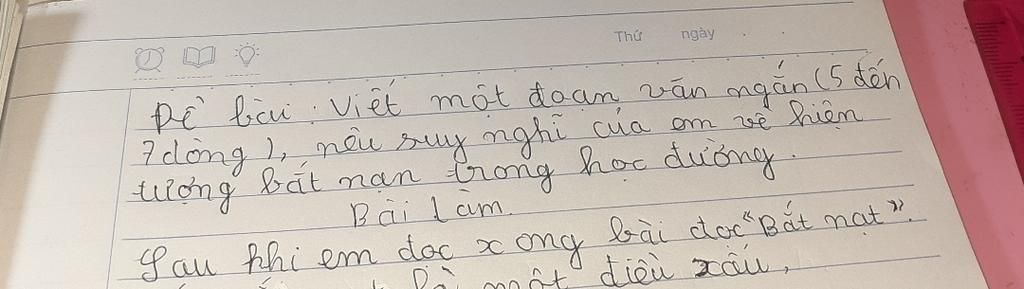 Thứ ngày
Đề bài: Viết một đoạn văn ngắn (5 đến
7 dòng), nêu suy nghĩ của em về hiện
tượng bắt nạn trong học đường.
Bài làm.
Sau khi em đọc xong bài đọc "Bắt nạt".
là một điều xấu,